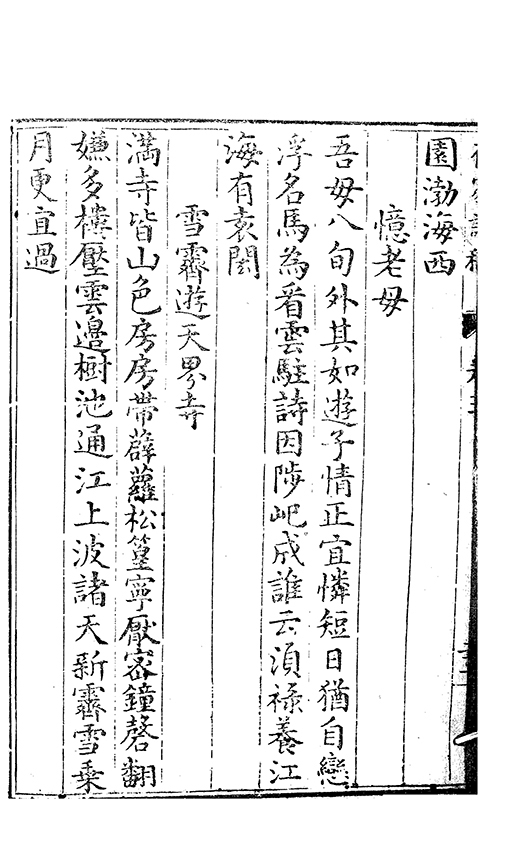 園渤海西
憶老母
吾母八旬外其如遊子情正宜憐短日猶自戀
浮名馬為看雲駐詩因陟屺成誰云湏祿養江
海有袁閎
雪霽遊天界寺
滿寺皆山色房房帶薜蘿松篁寧厭密鐘磬翻
嫌多樓壓雲邉樹池通江上波諸天新霽雪乗
月更宜過